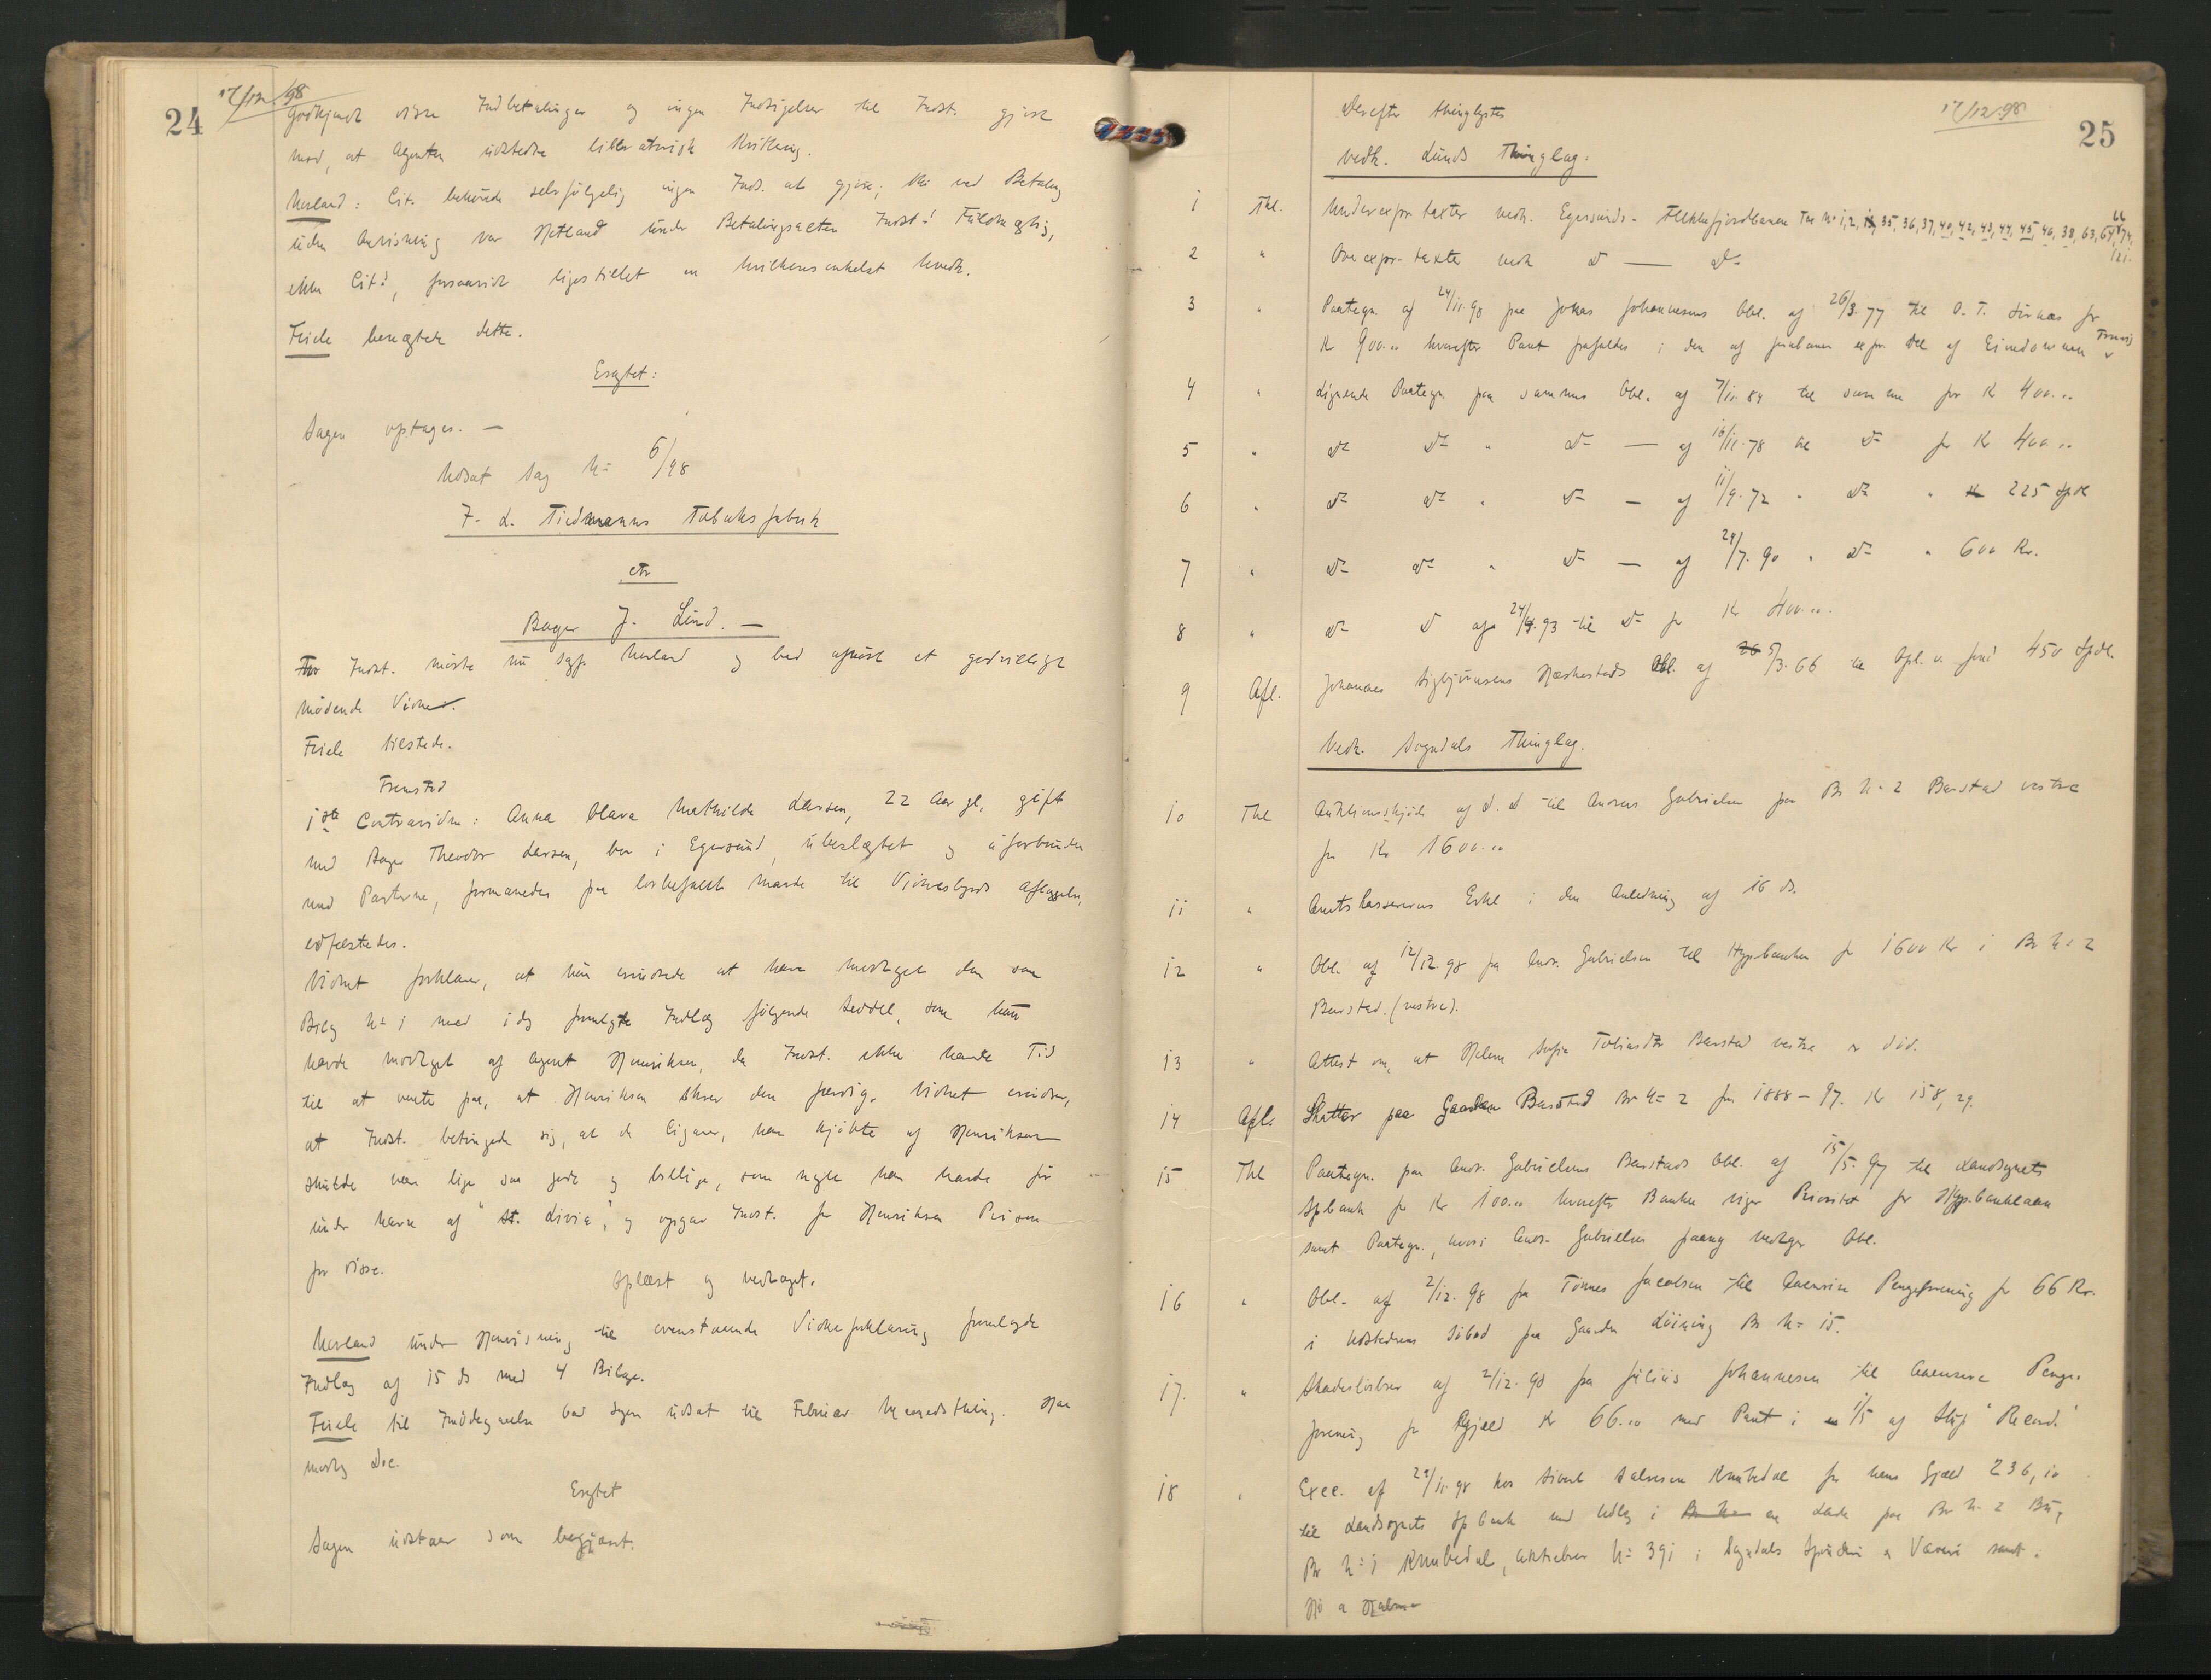 24
17/12.98
Godkjendt disse Indbetalinger og ingen Indsigelser til Indst. gjort
mod, at Agenten udstedte liberatorisk Kvittering.
Morland: Cit. behøvede selvfølgelig ingen Inds. at gjøre; thi ved Betaling
uden Anvisning var Hetland under Betalingsacten Indst.s Fuldmægtig,
ikke Cit.s, forsaavidt ligestillet en hvilkensomhelst
Feiele benægtede dette.
Eragtet:
Sagen optages. —
Udsat Sag No 6/98
J. L. Tiedemanns Tobaksfabrik
ctr
Bager J. Lind. —
For Indst. mødte nu Sagf. Morland og bad afhørt et godvilligt
mødende Vidne.
Feiele tilstede.
Fremstod
1ste Contravidne: Anna Olava Mathilde Larsen, 22 Aar gl, gift
med Bager Theodor Larsen, bor i Egersund, ubeslægtet og uforbunden
med Parterne, formanedes paa lovbefalet Maade til Vidnesbyrds Aflæggelse,
edfæstedes.
Vidnet forklarer, at hun erindrede at have modtaget den som
Bilag No 1 med idag fremlagte Indlæg følgende Seddel, som hun
havde modtaget af Agent Henriksen, da Indst. ikke havde Tid
til at vente paa, at Henriksen skrev den færdig. Vidnet erindrer,
at Indst. betingede sig, at de Cigarer, han kjøbte af Henriksen
skulde være lige saa gode og billige, som nogle han havde før
under Navn af "St. Livia", og opgav Indst. for Henriksen Prisen
for disse.
Oplæst og vedtaget.
Morland under Henvisning til ovenstaaende Vidneforklaring fremlagde
Indlæg af 15 ds med 4 Bilage.
Feiele til Imødegaaelse bad Sagen udsat til Februar Maanedsthing. Han
modtog Doc.
Eragtet
Sagen udstaar som begjært.
17/12.98
25
Derefter thinglystes
Vedk. Lunds Thinglag:
1 Thl. Underexpr. taxter vedk. Egersunds-Flekkefjordbanen Tax No 1, 2, 35, 36, 37, 40, 42, 43, 44, 45, 46, 38, 63, 64, 66, 74, 121.
2 " Overexpr. taxter vedk do — do
3 " Paategn. af 24/11.98 paa Jonas Johannesens Obl. af 26/3.77 til O. T. for
Kr 900.00 hvorefter Pant frafaldes i den af Jernbanen expr. Del af Eiendommen
4 " Lignende Paategn. paa sammes Obl. af 7/11.84 til samme for Kr 400.00
5 " do do " do — af 16/11.78 til do for Kr 400.00
6 " do do " do — af 11/9.72 " do " 225 Spdl
7 " do do " do — af 29/7.90 " do " 600 Kr.
8 " do do af 24/4.93 til do for Kr 400.00.
9 Afl. Johannes Sigbjørnsens Obl. af 5/3.66 til Opl. v. fond 450 Spdl.
Vedk. Sogndals Thinglag.
10 Thl Auktionsskjøde af d. d til Andreas Gabrielsen paa Br No 2 Barstad vestre
for Kr 1600.00
11 " Amtskassererens Erkl i den Anledning af 16 ds.
12 " Obl. af 12/12.98 fra Andr. Gabrielsen til Hypbanken for 1600 Kr i Br No 2
Barstad. (vestre).
13 " Attest om, at Helene Sofie Tobiasdtr Barstad vestre er død.
14 Afl. Skatter paa Gaarden Barstad Br No 2 for 1888–97. Kr 158,29.
15 Thl Paategn. paa Andr. Gabrielsens Barstads Obl. af 15/5.97 til Landsognets
Spbank for Kr 100.00 hvorefter Banken viger Prioritet for Hyp.banklaan
samt Paategn., hvori Andr. Gabrielsen paany vedtager Obl.
16 " Obl. af 2/12.98 fra Tønnes Jacobsen til Aaensire Pengeforening for 66 Kr.
i Udstederens Søbod paa Gaarden Br No 15.
17. " Skadesløsbrev af 2/12.98 fra Julius Johannesen til Aaensire Penge-
forening for Gjæld Kr 66.00 med Pant i 1/5 af Skip "Record."
18 " Exec. af 29/11.98 hos Sivert Salvesen Knubedal for hans Gjæld 236,10
til Landsognets Spbank med Udlæg i en Lade paa Br No 2 Bu,
Br No 1 Knubedal, Aktiebrev No 391 i Sogndals Spinderi & Væveri samt i
Hø & Halm